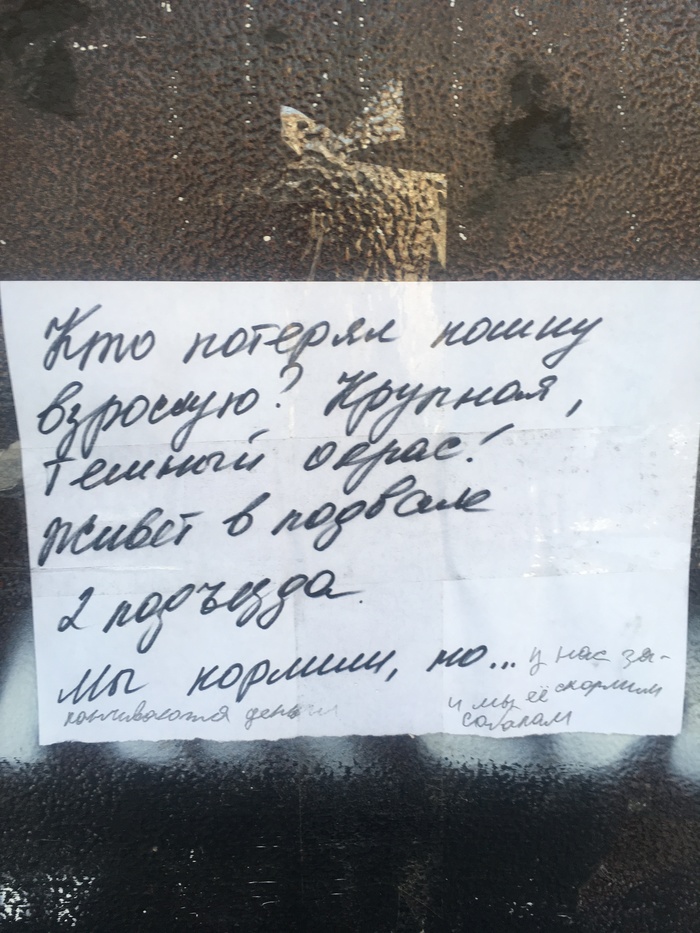 Кто потерял кошку
взрослую? Крупная,
темный окрас!
Живет в подвале
2 подъезда.
Мы кормим, но... у нас за-
канчиваются деньги
и мы её скормим
собакам